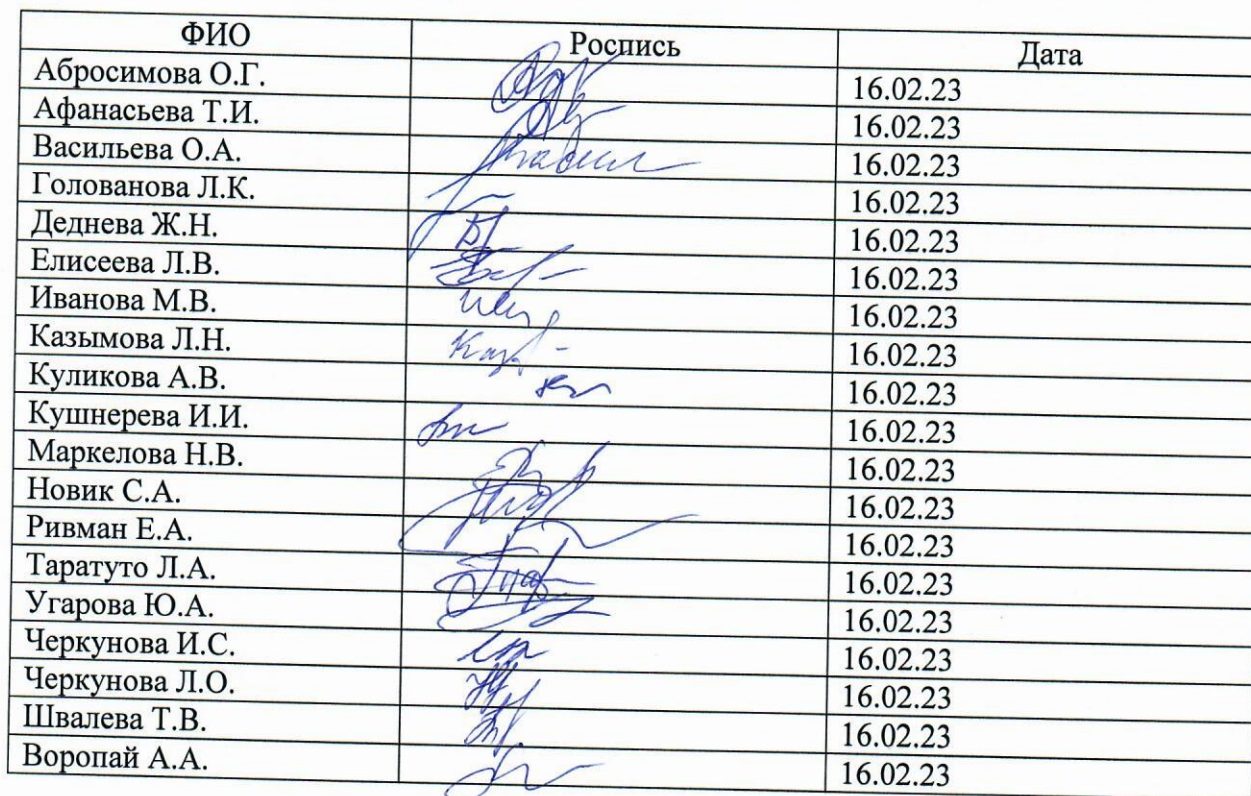 ФИО Роспись Дата
Абросимова О.Г. 16.02.23
Афанасьева Т.И. 16.02.23
Васильева О.А. 16.02.23
Голованова Л.К. 16.02.23
Деднева Ж.Н. 16.02.23
Елисеева Л.В. 16.02.23
Иванова М.В. 16.02.23
Казымова Л.Н. 16.02.23
Куликова А.В. 16.02.23
Кушнерева И.И. 16.02.23
Маркелова Н.В. 16.02.23
Новик С.А. 16.02.23
Ривман Е.А. 16.02.23
Таратуто Л.А. 16.02.23
Угарова Ю.А. 16.02.23
Черкунова И.С. 16.02.23
Черкунова Л.О. 16.02.23
Швалева Т.В. 16.02.23
Воропай А.А. 16.02.23